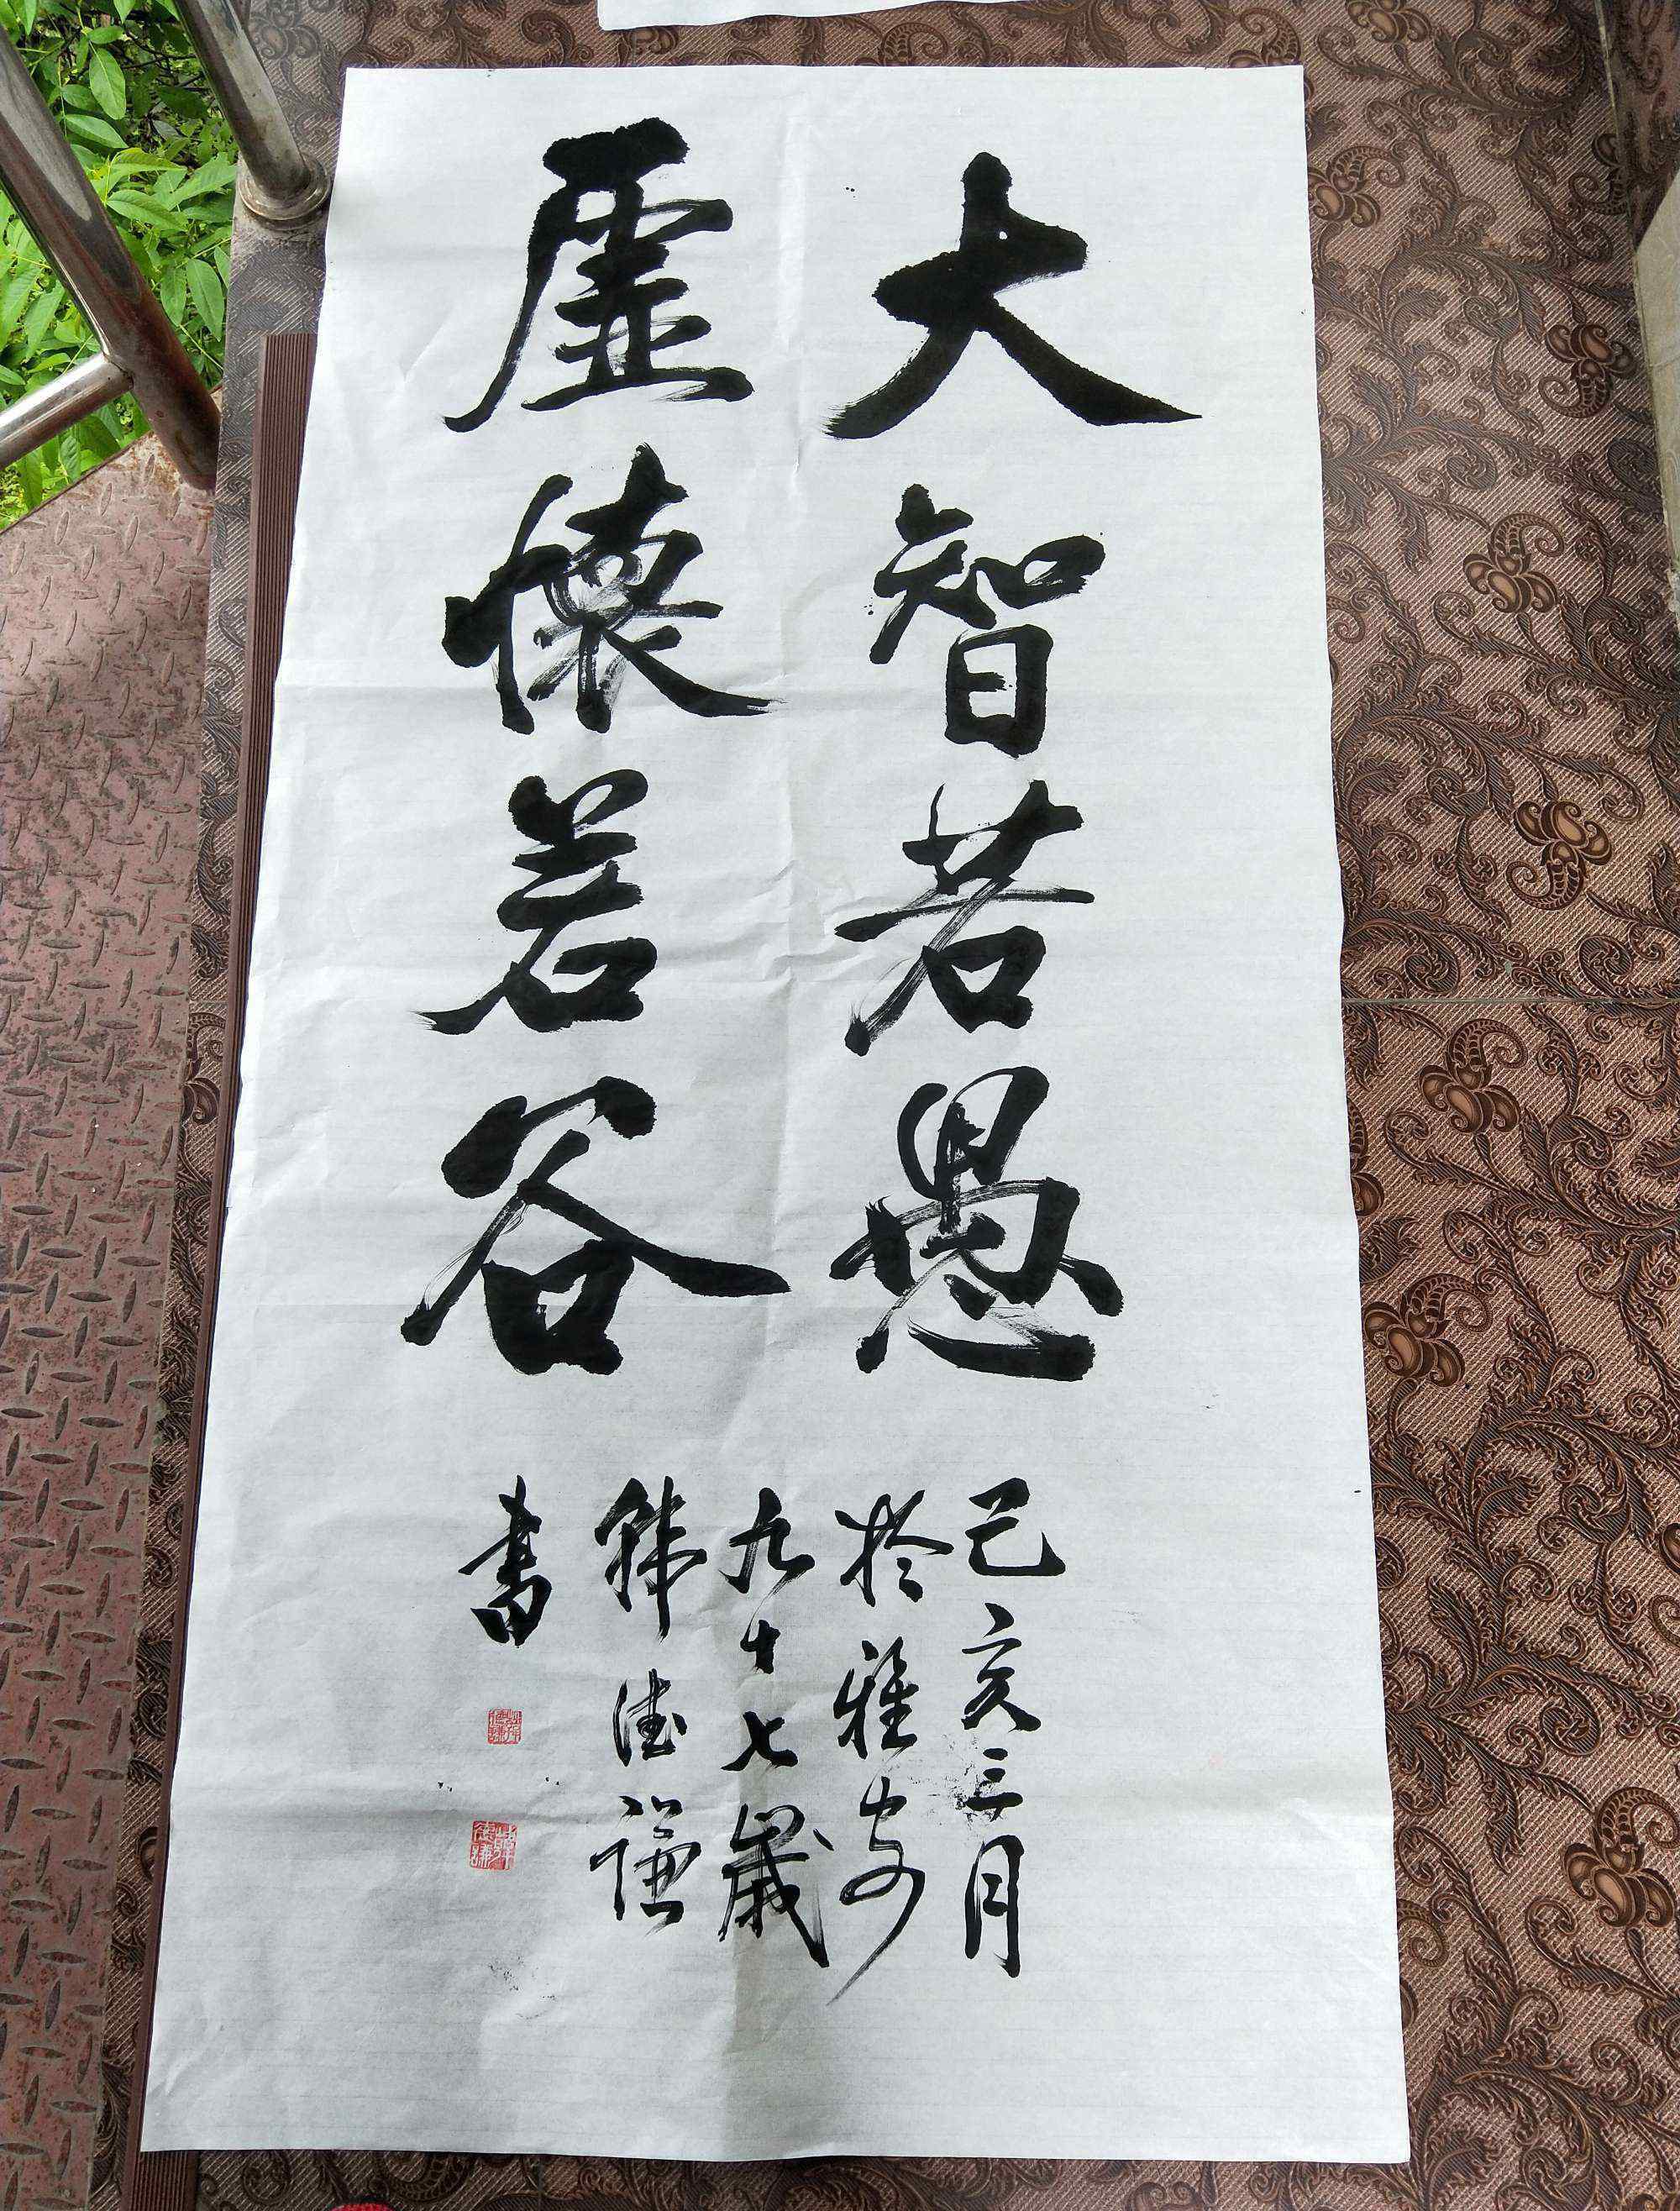 大智若愚
虛懷若谷
己亥三月
於雅安
九十七歲
韩德謙
書